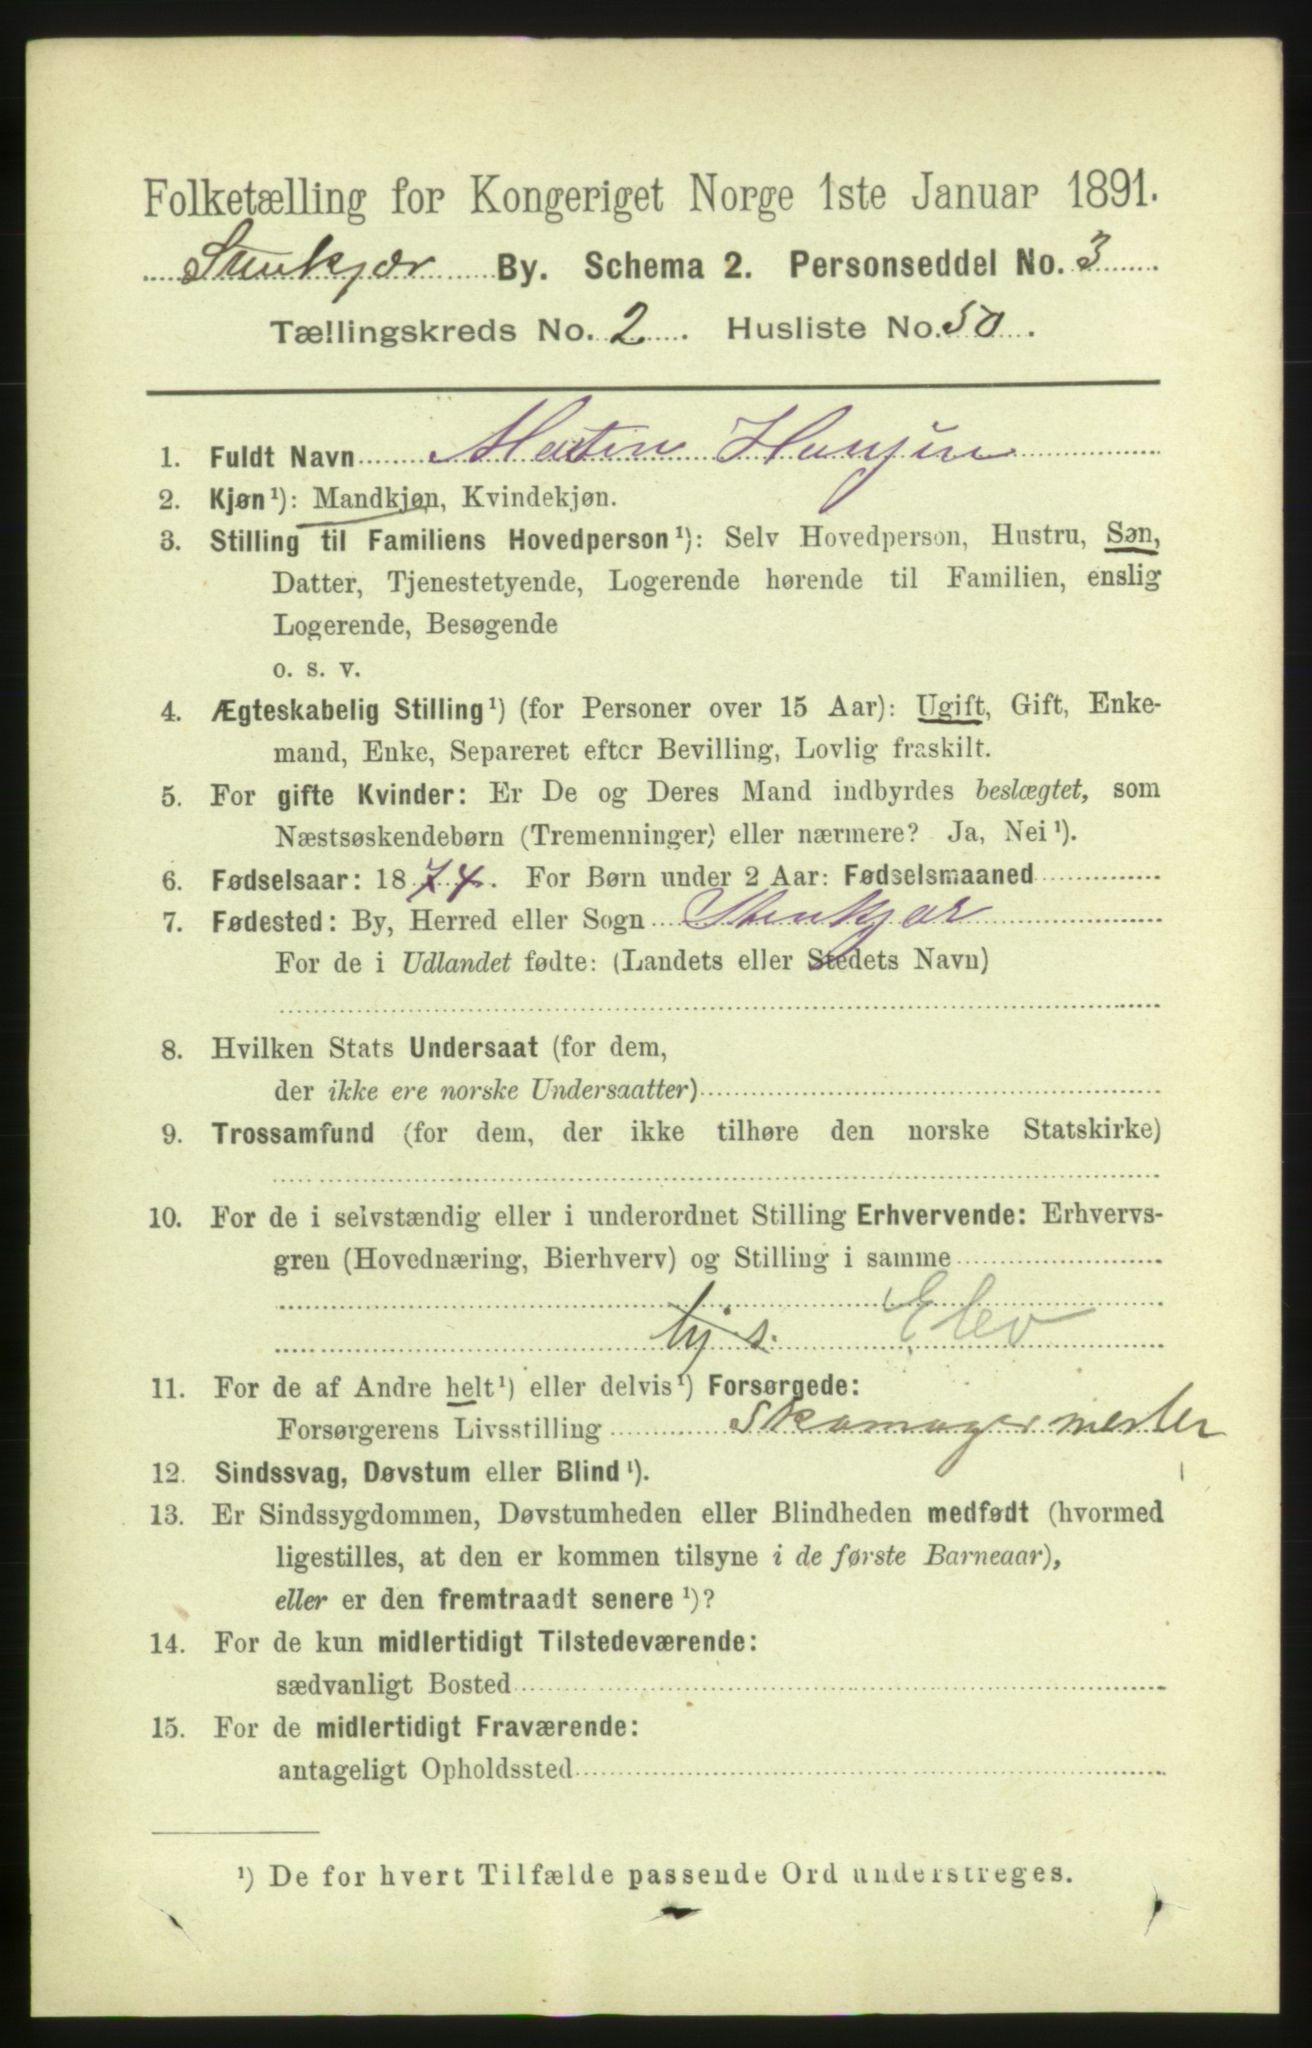 Folketælling for Kongeriget Norge 1ste Januar 1891.
Stenkjær By. Schema 2. Personseddel No. 3
Tællingskreds No. 2. Husliste No. 50.
1. Fuldt Navn Martin Hansen
2. Kjøn¹): Mandkjøn, Kvindekjøn.
3. Stilling til Familiens Hovedperson¹): Selv Hovedperson, Hustru, Søn,
Datter, Tjenestetyende, Logerende hørende til Familien, enslig
Logerende, Besøgende
o. s. v.
4. Ægteskabelig Stilling¹) (for Personer over 15 Aar): Ugift, Gift, Enke-
mand, Enke, Separeret efter Bevilling, Lovlig fraskilt.
5. For gifte Kvinder: Er De og Deres Mand indbyrdes beslægtet, som
Næstsøskendebørn (Tremenninger) eller nærmere? Ja, Nei¹).
6. Fødselsaar: 1874. For Børn under 2 Aar: Fødselsmaaned
7. Fødested: By, Herred eller Sogn Stenkjær
For de i Udlandet fødte: (Landets eller Stedets Navn)
8. Hvilken Stats Undersaat (for dem,
der ikke ere norske Undersaatter)
9. Trossamfund (for dem, der ikke tilhøre den norske Statskirke)
10. For de i selvstændig eller i underordnet Stilling Erhvervende: Erhvervs-
gren (Hovednæring, Bierhverv) og Stilling i samme
hj. s. Elev
11. For de af Andre helt¹) eller delvis¹) Forsørgede:
Forsørgerens Livsstilling Skomagermester
12. Sindssvag, Døvstum eller Blind¹).
13. Er Sindssygdommen, Døvstumheden eller Blindheden medfødt (hvormed
ligestilles, at den er kommen tilsyne i de første Barneaar),
eller er den fremtraadt senere¹)?
14. For de kun midlertidigt Tilstedeværende:
sædvanligt Bosted
15. For de midlertidigt Fraværende:
antageligt Opholdssted
¹) De for hvert Tilfælde passende Ord understreges.